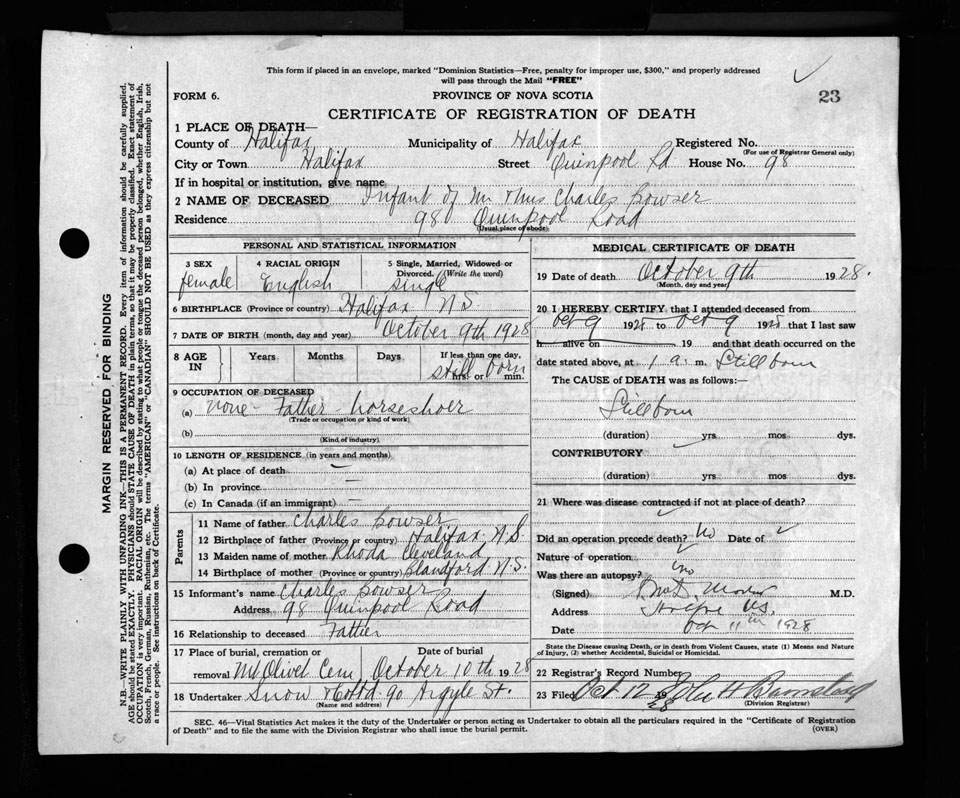 This form if placed in an envelope, marked "Dominion Statistics—Free, penalty for improper use, $300," and properly addressed
will pass through the Mail "FREE"
FORM 6.
PROVINCE OF NOVA SCOTIA
23
CERTIFICATE OF REGISTRATION OF DEATH
1 PLACE OF DEATH—
County of Halifax Municipality of Halifax Registered No.
(For use of Registrar General only)
City or Town Halifax Street Quinpool Rd House No. 98
If in hospital or institution, give name
2 NAME OF DECEASED Infant of Mr & Mrs Charles Bowser
Residence 98 Quinpool Road
(Usual place of abode)
PERSONAL AND STATISTICAL INFORMATION
3 SEX female
4 RACIAL ORIGIN English
5 Single, Married, Widowed or
Divorced. (Write the word)
single
6 BIRTHPLACE (Province or country) Halifax N.S.
7 DATE OF BIRTH (month, day and year) October 9th 1928
8 AGE IN Years Months Days If less than one day,
hrs. or min.
still born
9 OCCUPATION OF DECEASED
(a) none - Father - horseshoer
(Trade or occupation or kind of work)
(b)
(Kind of industry)
10 LENGTH OF RESIDENCE (in years and months)
(a) At place of death —
(b) In province —
(c) In Canada (if an immigrant) —
Parents
11 Name of father Charles Bowser
12 Birthplace of father (Province or country) Halifax, N.S.
13 Maiden name of mother Rhoda Cleveland
14 Birthplace of mother (Province or country) Blandford N.S.
15 Informant's name Charles Bowser
Address 98 Quinpool Road
16 Relationship to deceased Father
17 Place of burial, cremation or Date of burial
removal Mt Olivet Cem. October 10th 1928
18 Undertaker Snow & Co Ltd 90 Argyle St.
(Name and address)
MEDICAL CERTIFICATE OF DEATH
19 Date of death October 9th 1928.
(Month, day and year)
20 I HEREBY CERTIFY that I attended deceased from
Oct 9 1928 to Oct 9 1928 that I last saw
h alive on 19 and that death occurred on the
date stated above, at 1 a. m. Stillborn
The CAUSE OF DEATH was as follows:—
Stillborn
(duration) yrs. mos. dys.
CONTRIBUTORY
(duration) yrs. mos. dys.
21 Where was disease contracted if not at place of death?
Did an operation precede death? No Date of
Nature of operation
Was there an autopsy? no
(Signed) M.D.
Address N.S.
Date Oct 11th 1928
State the Disease causing Death, or in death from Violent Causes, state (1) Means and Nature
of Injury, (2) whether Accidental, Suicidal or Homicidal.
22 Registrar's Record Number
23 Filed Oct 12 1928 John H
(Division Registrar)
SEC. 46—Vital Statistics Act makes it the duty of the Undertaker or person acting as Undertaker to obtain all the particulars required in the "Certificate of Registration
of Death" and to file the same with the Division Registrar who shall issue the burial permit.
(OVER)
MARGIN RESERVED FOR BINDING
N.B.—WRITE PLAINLY WITH UNFADING INK—THIS IS A PERMANENT RECORD. Every item of information should be carefully supplied.
AGE should be stated EXACTLY. PHYSICIANS should STATE CAUSE OF DEATH in plain terms, so that it may be properly classified. Exact statement of
OCCUPATION is very important. RACIAL ORIGIN will be described by stating to what people or tongue the deceased person belonged, whether English, Irish,
Scotch, French, German, Russian, Ruthenian, etc. The terms "AMERICAN" or "CANADIAN" SHOULD NOT BE USED as they express citizenship but not
a race or people. See instructions on back of Certificate.